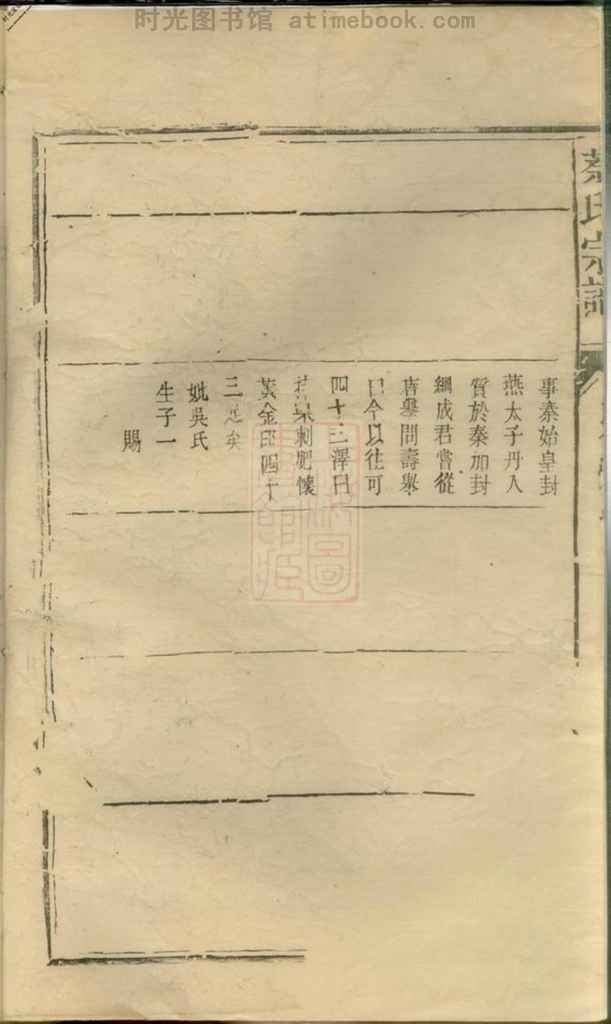 时光图书馆 atimebook.com
蔡氏宗譜
事秦始皇封
燕太子丹入
質於秦加封
綱成君嘗從
唐舉問壽舉
曰今以往可
四十三澤曰
刺肥懷
黃金印四十
三足矣
妣吳氏
生子一
賜